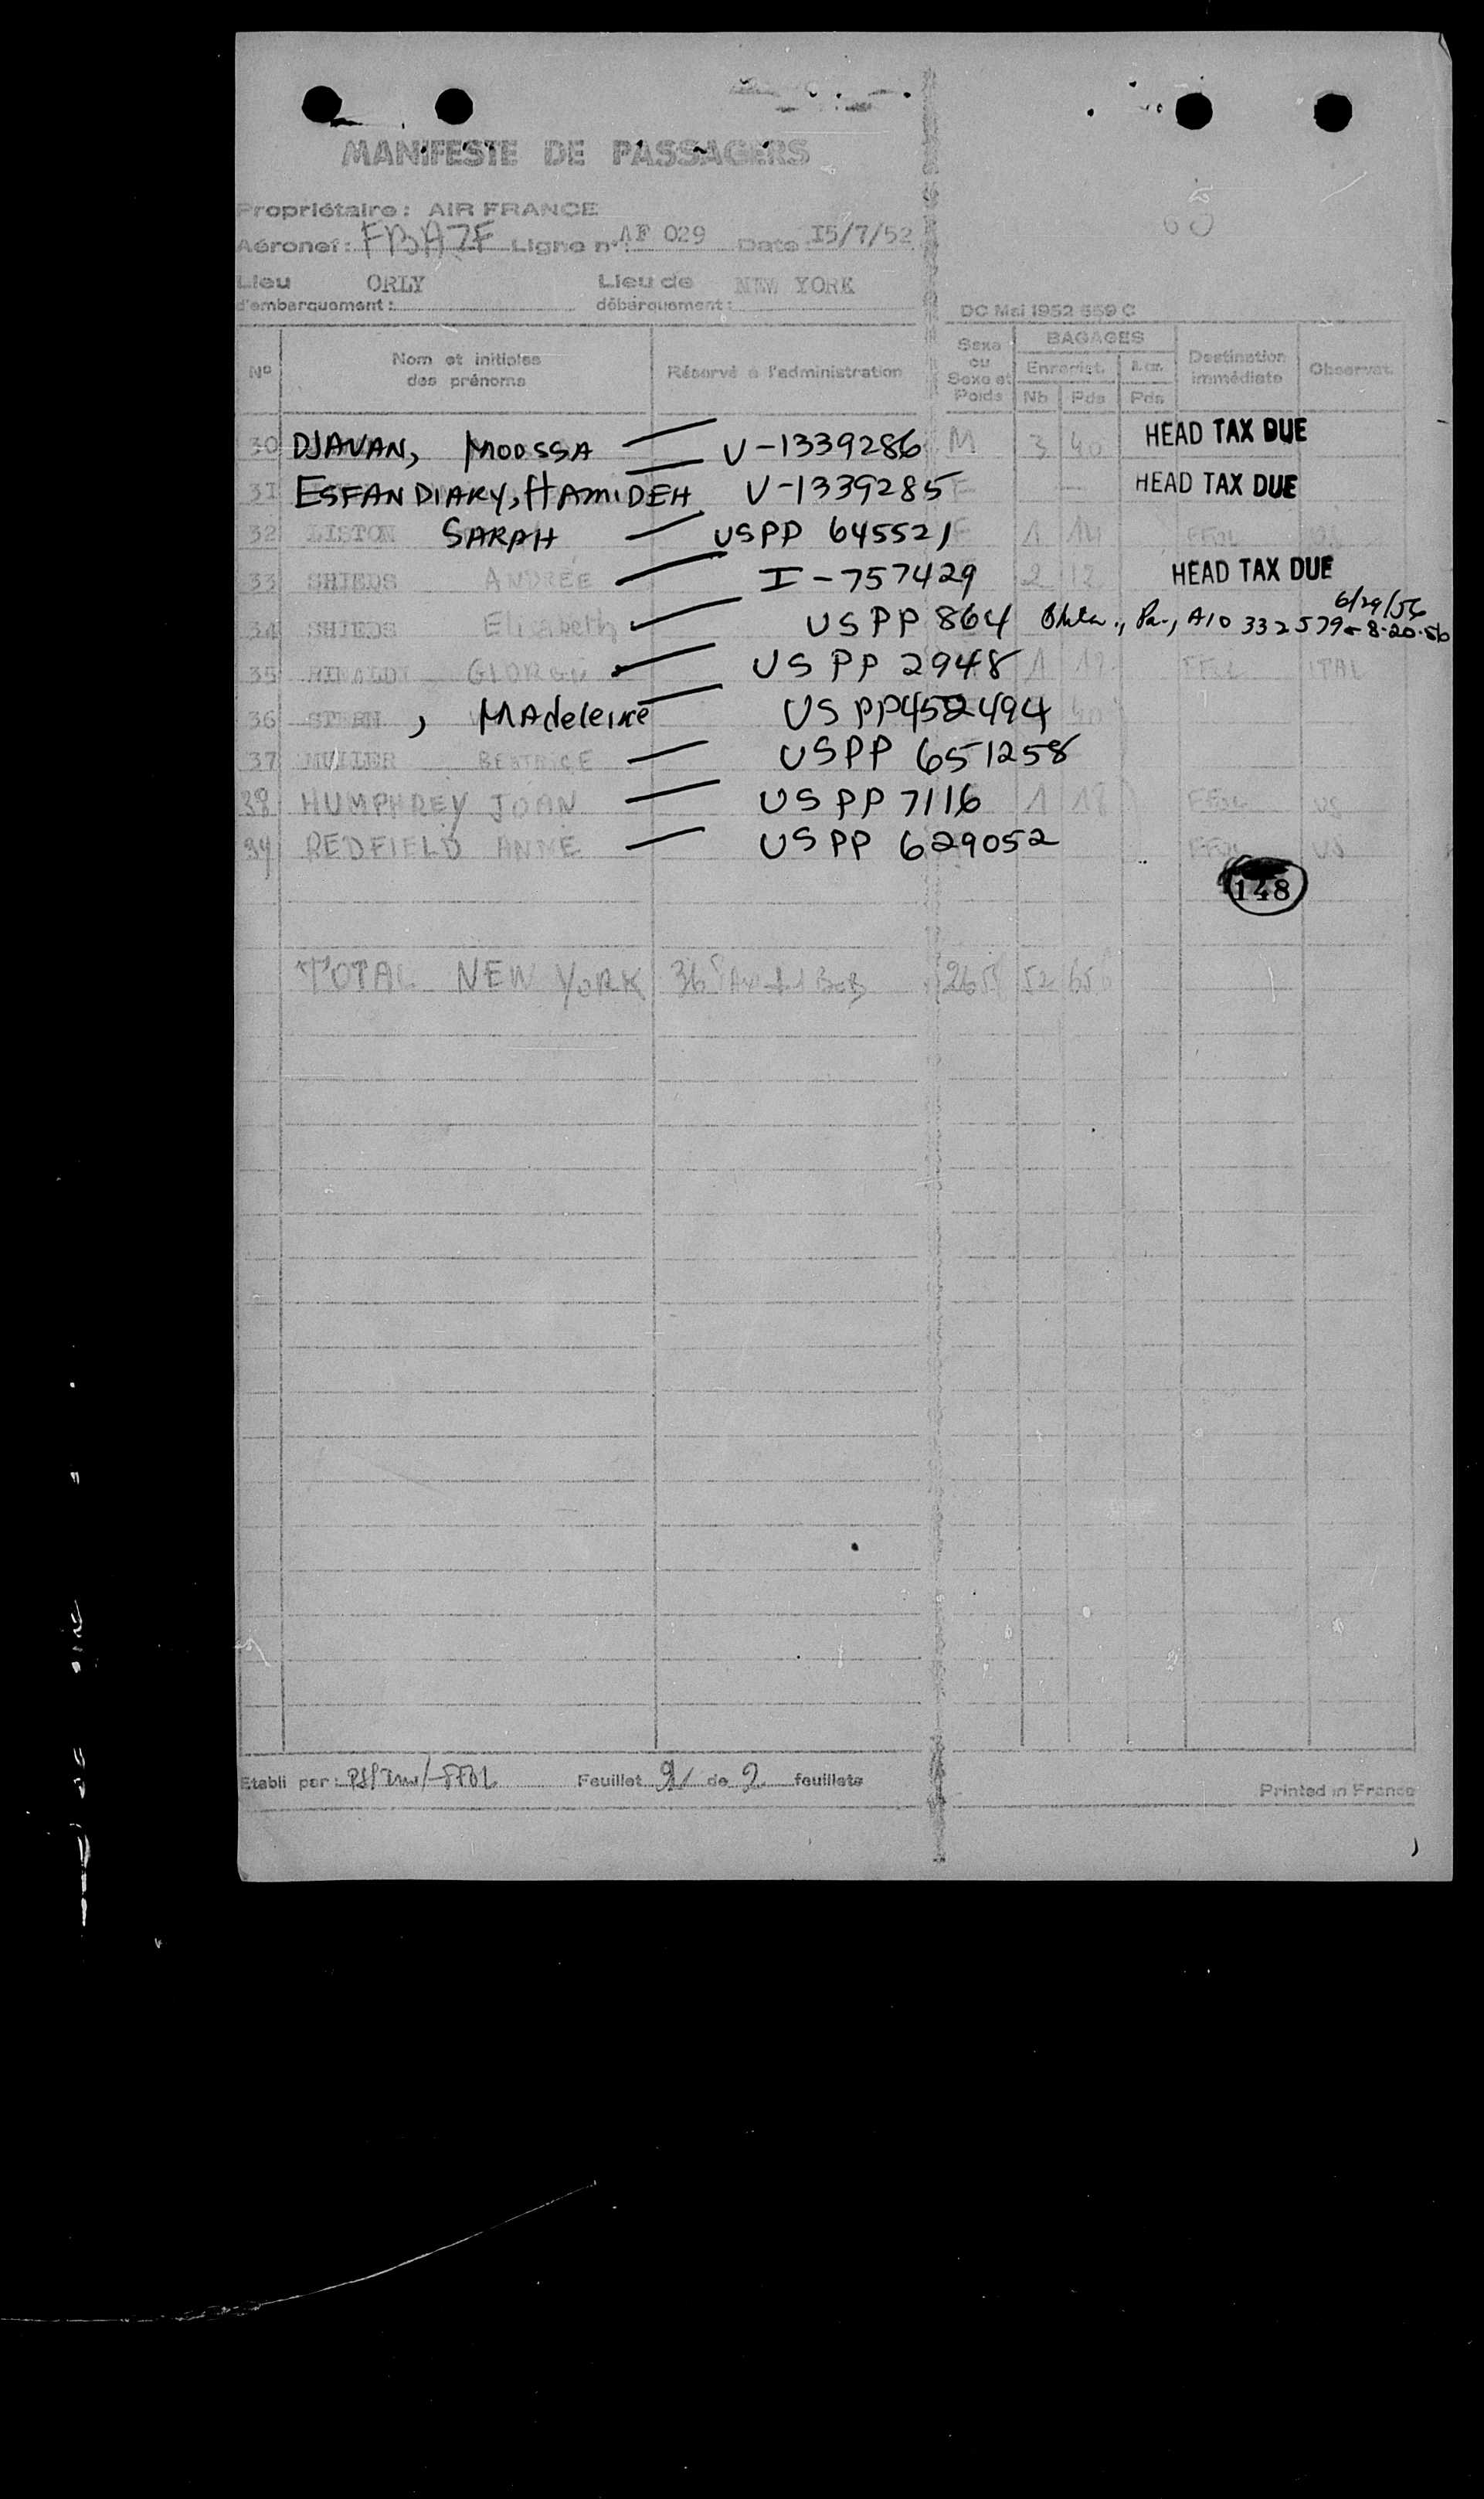 MANIFESTE DE PASSAGERS
Propriétaire : AIR FRANCE
Aéronef : FBAZF Ligne n° : AF 029 Date 15/7/52
Lieu d'embarquement : ORLY Lieu de débarquement : NEW YORK
DC Mai 1952 559 C
N° Nom et initiales des prénoms Réservé à l'administration Sexe ou Sexe et Poids BAGAGES Enregist. Nb Pds Pds Destination immédiate Observat.
30 DJAVAN, MOOSSA V-1339286 M 3 40 HEAD TAX DUE
31 ESFANDIARY, HAMIDEH V-1339285 F — HEAD TAX DUE
32 LISTON SARAH USPP 645521 F 1 14
33 SHIEDS ANDRÉE I-757429 2 12 HEAD TAX DUE
34 SHIEDS Elisabeth USPP 864 Pa., A10 332 579 8-20-56
6/29/56
35 RINALDI GIORGIO US PP 2948 1 ITAL
36 STERN, MAdeleine US PP 452494
37 MULLER BEATRICE USPP 651258
38 HUMPHREY JOAN US PP 7116 1 18 US
39 REDFIELD ANNE US PP 629052 US
148
TOTAL NEW YORK 36 52
Etabli par : Feuillet 2 de 2 feuillets
Printed in France